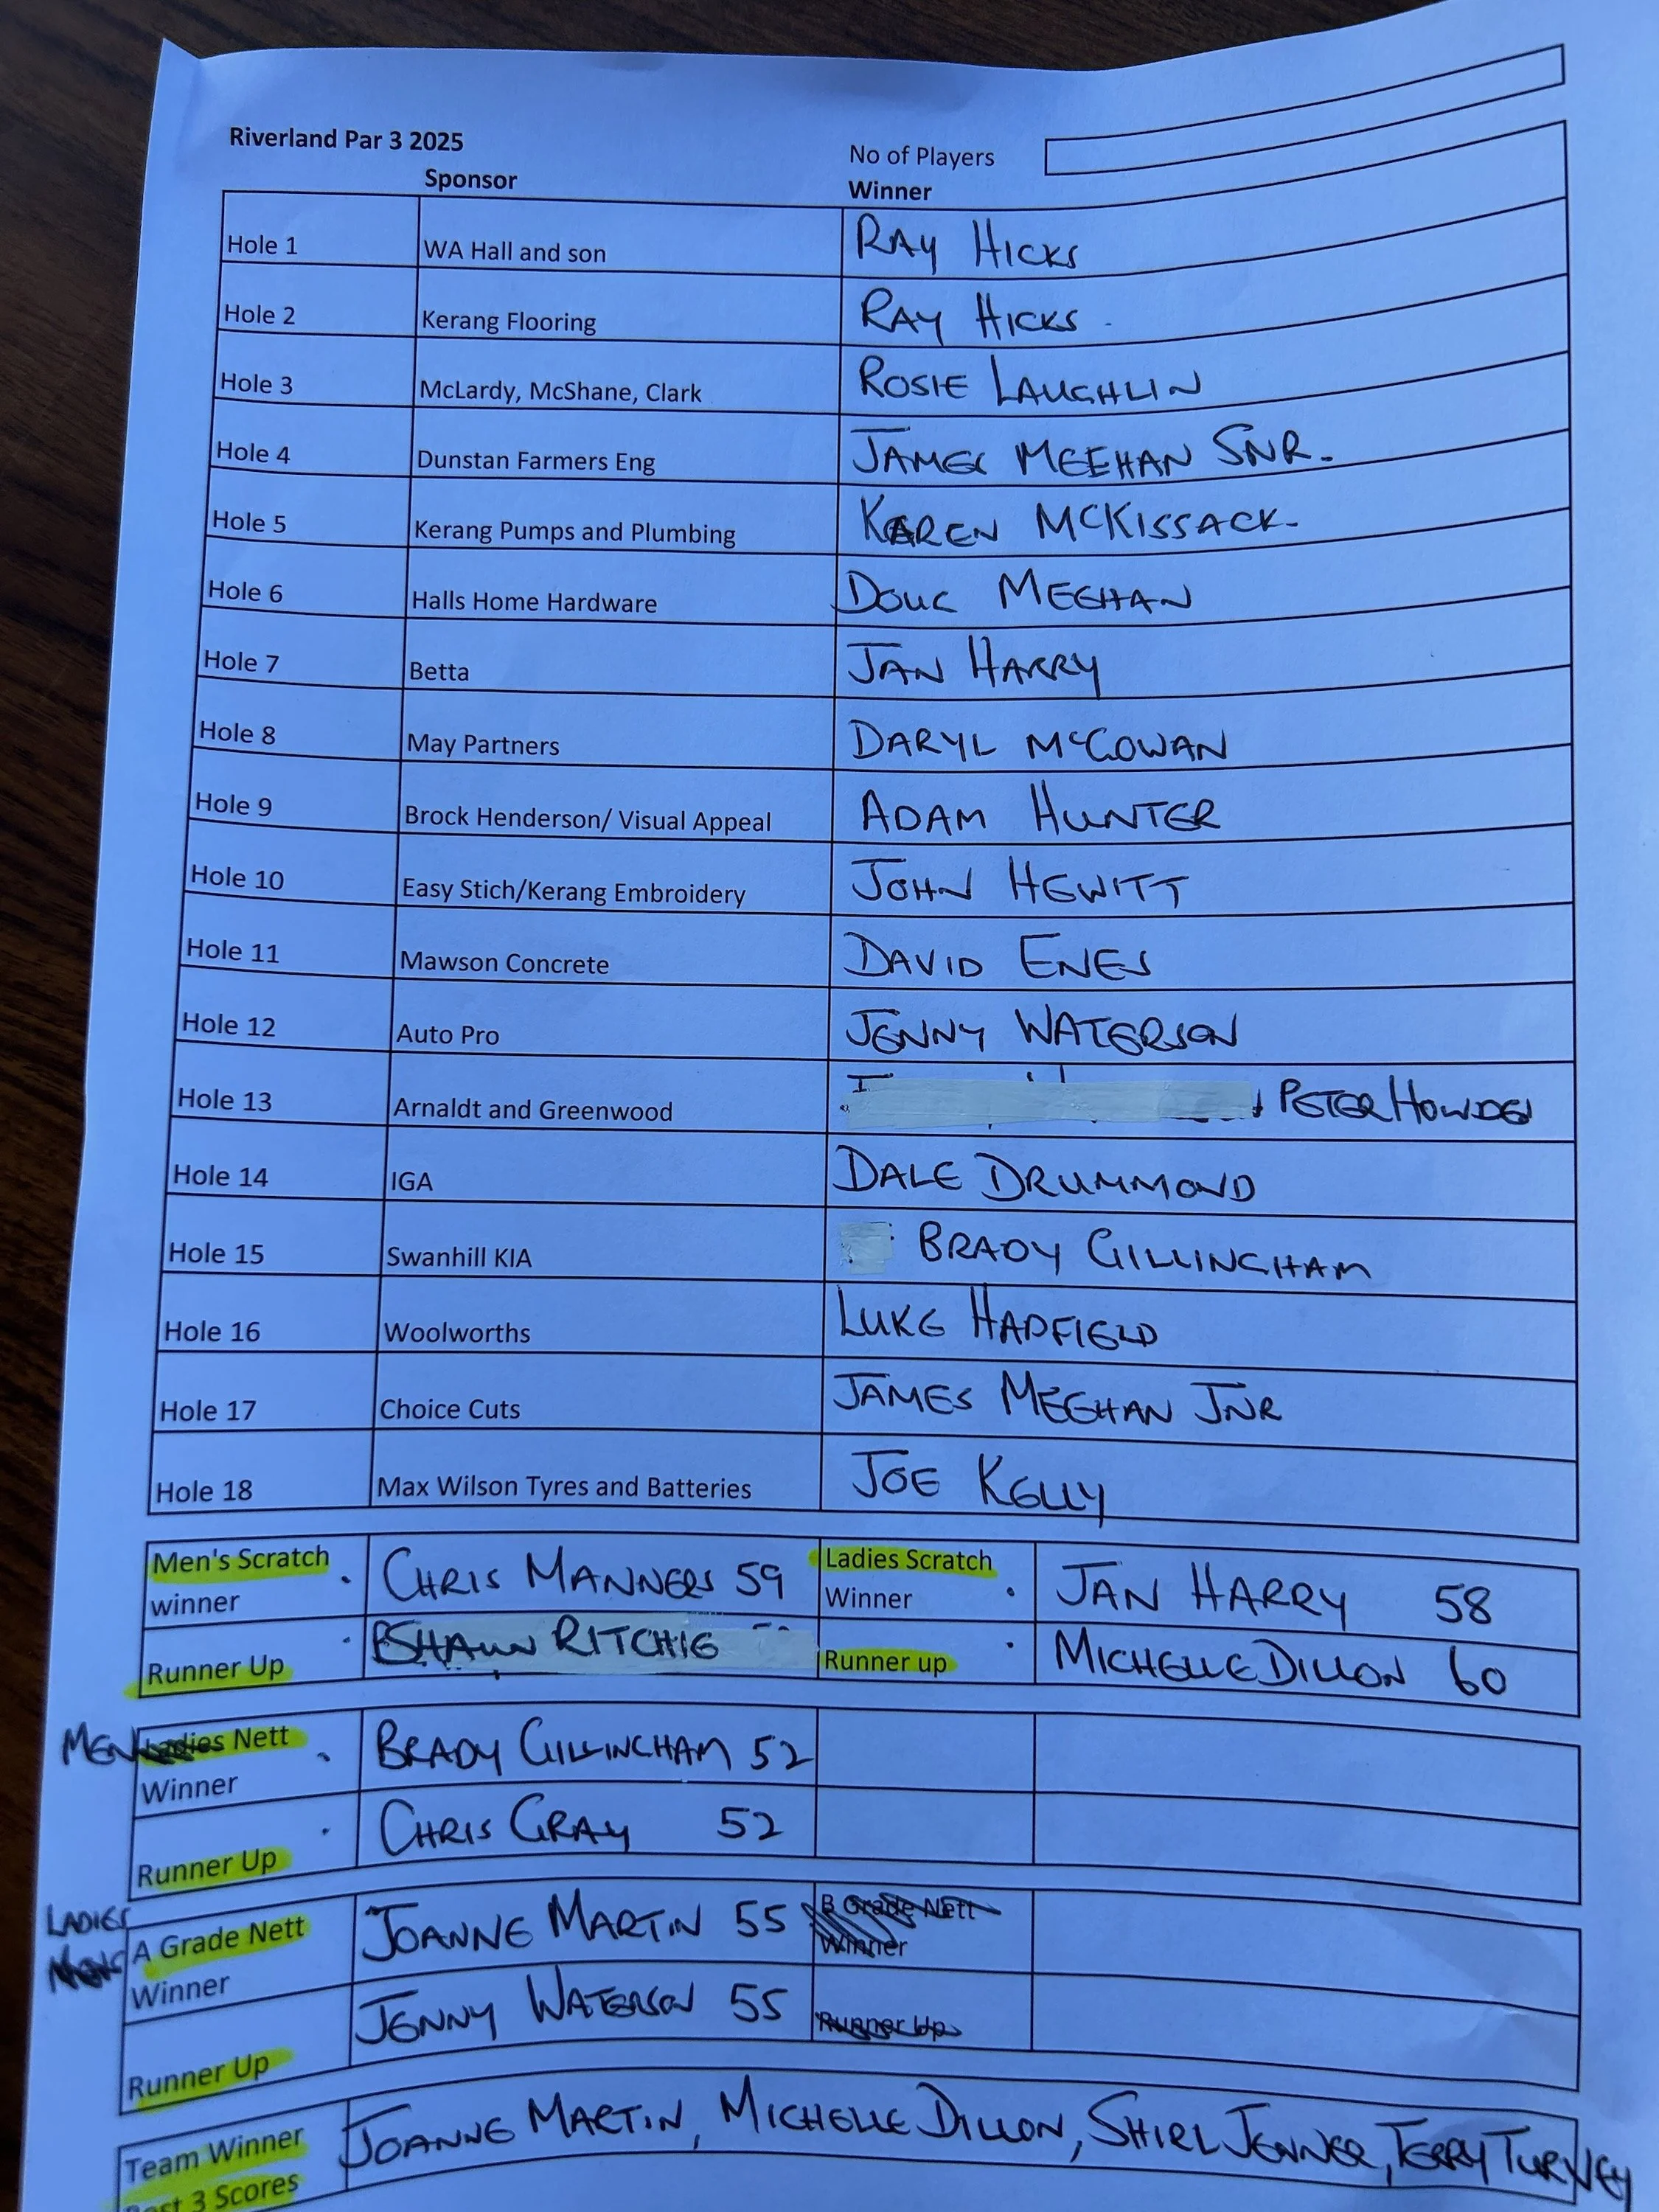 Riverland Par 3 2025
No of Players
Sponsor Winner
Hole 1 WA Hall and son RAY HICKS
Hole 2 Kerang Flooring RAY HICKS
Hole 3 McLardy, McShane, Clark ROSIE LAUGHLIN
Hole 4 Dunstan Farmers Eng JAMES MEEHAN SNR.
Hole 5 Kerang Pumps and Plumbing KAREN MCKISSACK
Hole 6 Halls Home Hardware DOUG MEEHAN
Hole 7 Betta JAN HARRY
Hole 8 May Partners DARYL MCGOWAN
Hole 9 Brock Henderson/ Visual Appeal ADAM HUNTER
Hole 10 Easy Stich/Kerang Embroidery JOHN HEWITT
Hole 11 Mawson Concrete DAVID ENES
Hole 12 Auto Pro JENNY WATERSON
Hole 13 Arnaldt and Greenwood PETER HOWDEN
Hole 14 IGA DALE DRUMMOND
Hole 15 Swanhill KIA BRADY GILLINGHAM
Hole 16 Woolworths LUKE HADFIELD
Hole 17 Choice Cuts JAMES MEEHAN JNR
Hole 18 Max Wilson Tyres and Batteries JOE KELLY
Men's Scratch winner CHRIS MANNERS 59 Ladies Scratch Winner JAN HARRY 58
Runner Up SHAUN RITCHIE Runner up MICHELLE DILLON 60
MEN Ladies Nett Winner BRADY GILLINGHAM 52
Runner Up CHRIS GRAY 52
LADIES
A Grade Nett Winner JOANNE MARTIN 55 B Grade Nett Winner
Runner Up JENNY WATERSON 55 Runner Up
Team Winner JOANNE MARTIN, MICHELLE DILLON, SHIRL JENNER, TERRY TURNEY
3 Scores